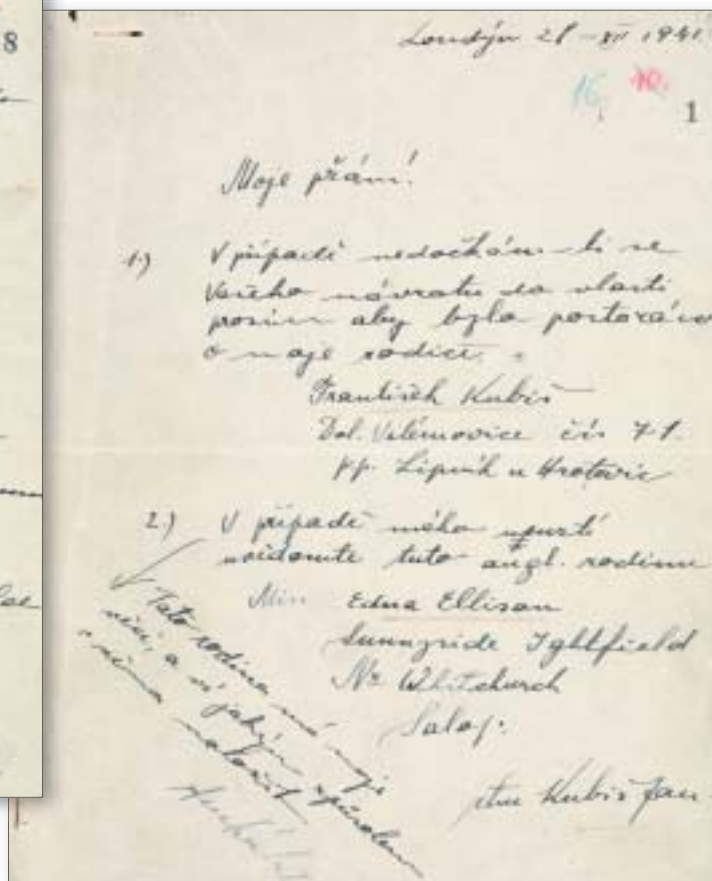 8
Londýn 28 - XII 1941
16, 10.
1
Moje přání!
1.) V případě nedočkám-li se
Vašeho návratu do vlasti
prosím aby bylo postaráno
o moje rodiče.
František Kubiš
Dol. Vilémovice čís 71.
pp. Lipník u Hrotovic
2.) V případě mého
uvědomte tuto angl. rodinu
Miss Edna Ellison
Sunnyside Ightfield
Nr Whitchurch
Salop.
Kubiš Jan
Tato rodina má moje
věci, a ví jakým způsobem
s nima naložit